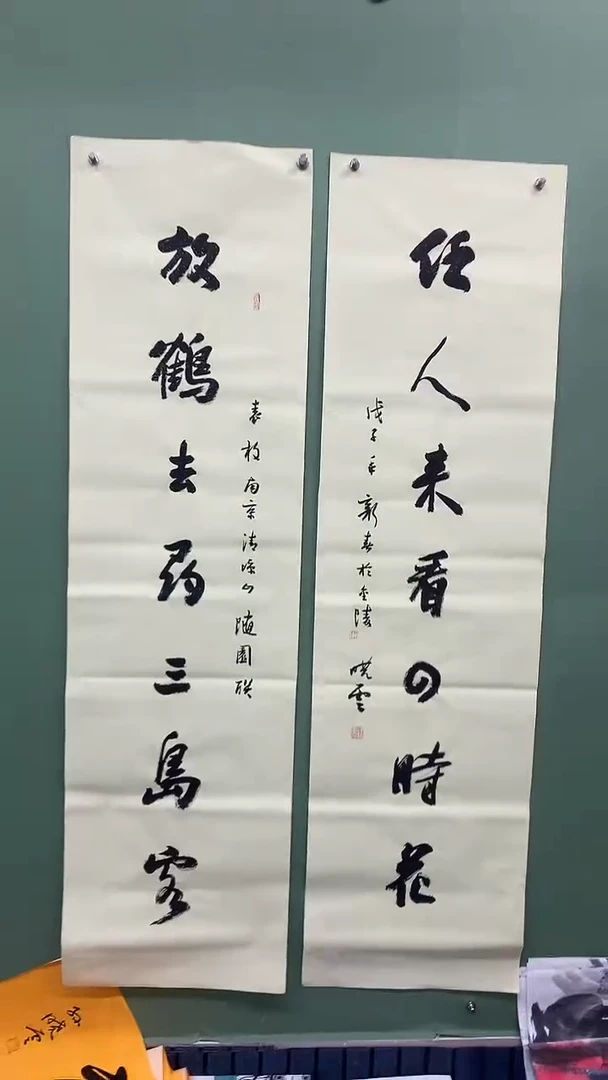 放鶴去尋三島客
袁枚南京清凉山随園联
任人来看四時花
戊子年新春於金陵 曉雲